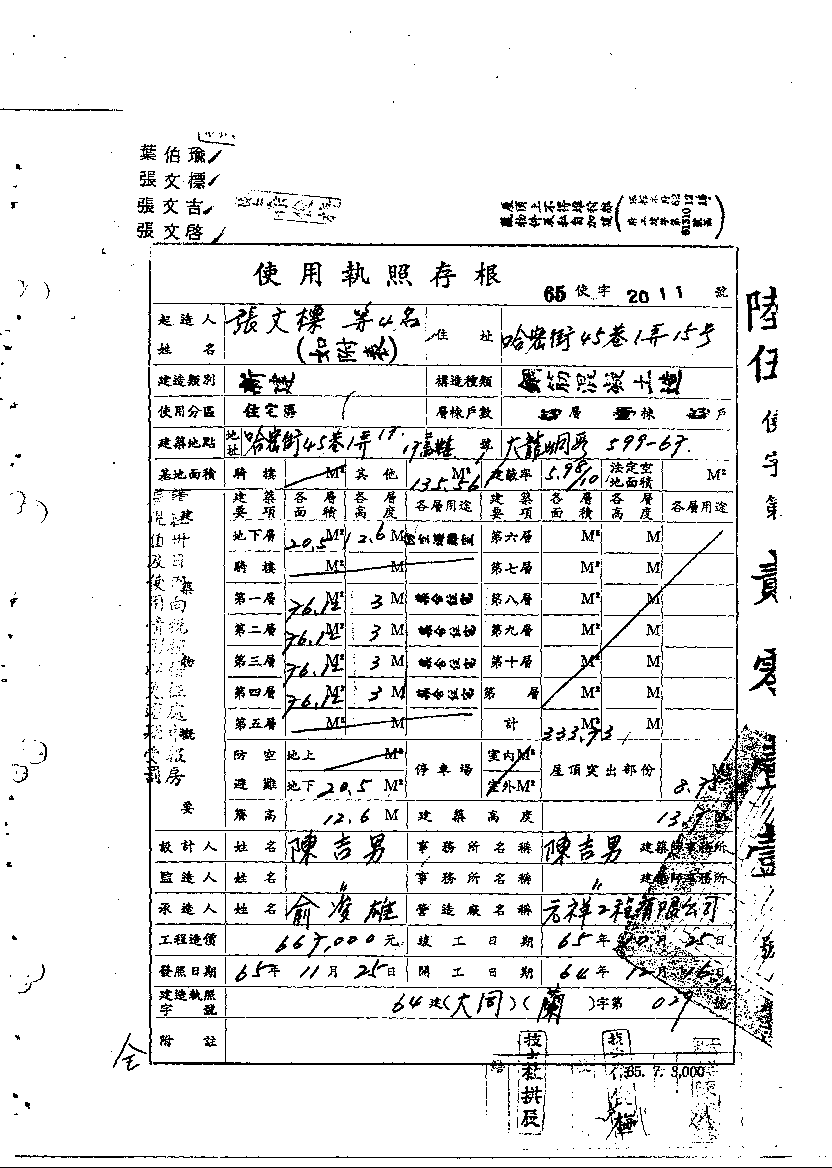 葉伯瑜
張文標
張文吉
張文啓
使用執照存根
65 使字 2011 號
起造人姓名 張文標 等4名 (如附表) 住址 哈密街45巷1弄15号
建造類別 新建 構造種類 鋼筋混凝土造
使用分區 住宅區 層棟戶數 層 棟 戶
建築地點 地址 哈密街45巷1弄 號 大龍峒段 599-67
基地面積 騎樓 M² 其他 135.56 M² 建蔽率 5.98/10 法定空地面積 M²
建築要項 各層面積 各層高度 各層用途 建築要項 各層面積 各層高度 各層用途
地下層 20.5 M² 2.6 M 第六層 M² M
騎樓 M² M 第七層 M² M
第一層 76.12 M² 3 M 集合住宅 第八層 M² M
第二層 76.12 M² 3 M 集合住宅 第九層 M² M
第三層 76.12 M² 3 M 集合住宅 第十層 M² M
第四層 76.12 M² 3 M 集合住宅 第 層 M² M
第五層 M² M 計 333.73 M² M
防空避難 地上 M² 停車場 室內 M² 屋頂突出部份
地下 20.5 M² 室外 M² 8.75
簷高 12.6 M 建築高度
設計人 姓名 陳吉男 事務所名稱 陳吉男 建築師事務所
監造人 姓名 〃 事務所名稱 〃 建築師事務所
承造人 姓名 俞凌雄 營造廠名稱 元祥工程有限公司
工程造價 667,000 元 竣工日期 65 年 10 月 25 日
發照日期 65 年 11 月 25 日 開工日期 64 年 12 月 16 日
建造執照字號 64 建(大同)(蘭)字第 029 號
附註
65.7.3,000
陸伍使字第貳零壹壹號